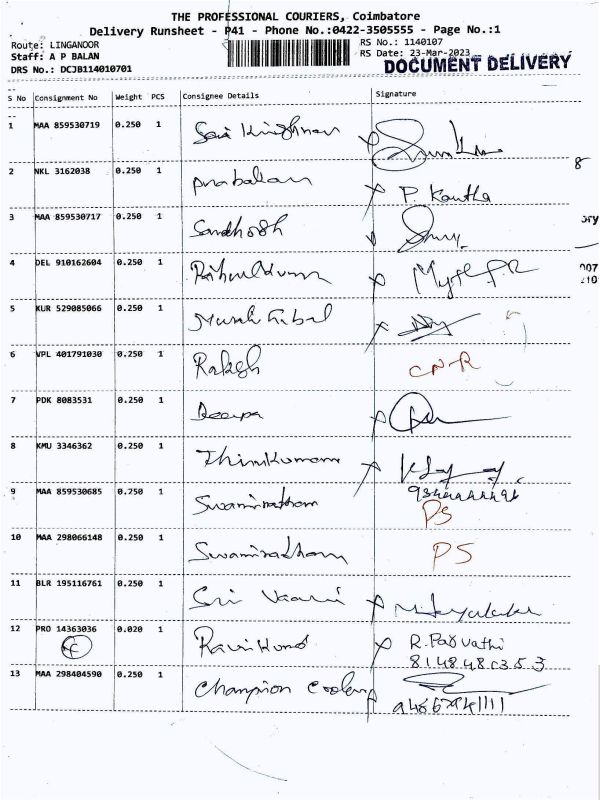 THE PROFESSIONAL COURIERS, Coimbatore
Delivery Runsheet - P41 - Phone No.:0422-3505555 - Page No.:1
Route: LINGANOOR RS No.: 1140107
Staff: A P BALAN RS Date: 23-Mar-2023
DRS No.: DCJB114010701 DOCUMENT DELIVERY
S No Consignment No Weight PCS Consignee Details Signature
1 MAA 859530719 0.250 1 Sai Krishnan
2 NKL 3162038 0.250 1 Prabakaran P. Kavitha
8
3 MAA 859530717 0.250 1 Sandhosh
ory
4 DEL 910162604 0.250 1 Rahul Kumar
007
210
5 KUR 529085066 0.250 1
6 VPL 401791030 0.250 1 Rakesh CNR
7 PDK 8083531 0.250 1 Deepa
8 KMU 3346362 0.250 1 Thirukumaran
9 MAA 859530685 0.250 1 Swaminathan PS
10 MAA 298066148 0.250 1 Swaminathan PS
11 BLR 195116761 0.250 1 Sri
12 PRO 14363036 0.020 1 R. Parvathi
13 MAA 298404590 0.250 1 Champion